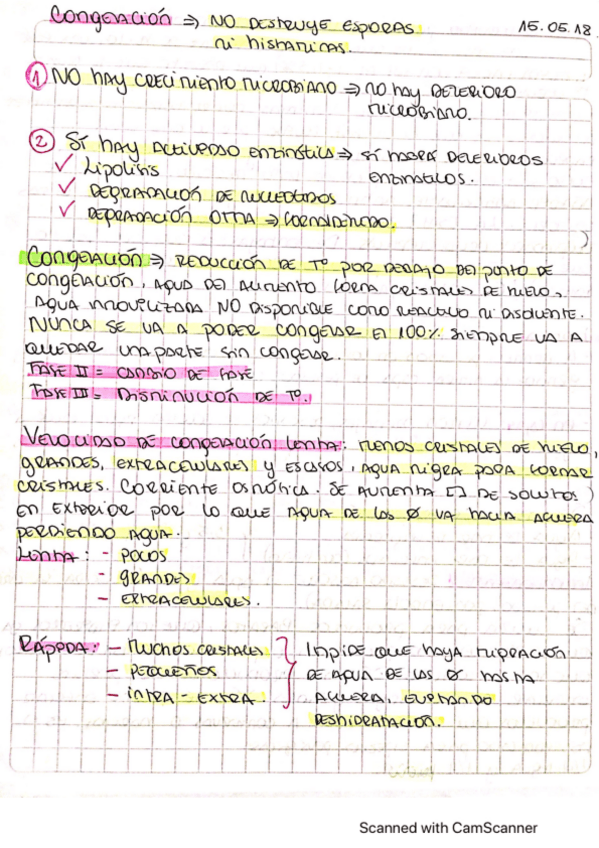 Congelación ⇒ NO DESTRUYE ESPORAS 15.05.18
ni histaminas.
① NO hAY CRECIMIENTO MICROBIANO ⇒ NO HAY DETERIORO
MICROBIANO.
② SÍ HAY ACTIVIDAD ENZIMÁTICA ⇒ SÍ HABRÁ DETERIOROS
✓ LIPOLISIS ENZIMÁTICOS.
✓ DEGRADACIÓN DE NUCLEÓTIDOS
✓ DEGRADACIÓN OTMA ⇒ FORMALDEHIDO.
CONGELACIÓN ⇒ REDUCCIÓN DE Tº POR DEBAJO DEL PUNTO DE
CONGELACIÓN, AGUA DEL ALIMENTO FORMA CRISTALES DE HIELO,
AGUA INMOVILIZADA NO DISPONIBLE COMO REACTIVO NI DISOLVENTE.
NUNCA SE VA A PODER CONGELAR El 100% SIEMPRE VA A
QUEDAR UNA PARTE SIN CONGELAR.
FASE II = CAMBIO DE FASE
FASE III = DISMINUCIÓN DE Tº.
VELOCIDAD DE CONGELACIÓN LENTA: MENOS CRISTALES DE HIELO,
GRANDES, EXTRACELULARES Y ESCASOS, AGUA MIGRA PARA FORMAR
CRISTALES. CORRIENTE OSMÓTICA. SE AUMENTA [] DE SOLUTOS
EN EXTERIOR POR LO QUE AGUA DE LAS Ø VA HACIA AFUERA
PERDIENDO AGUA.
LENTA: - POCOS
- GRANDES
- EXTRACELULARES.
RÁPIDA: - MUCHOS CRISTALES } IMPIDE QUE HAYA MIGRACIÓN
- PEQUEÑOS DE AGUA DE LAS Ø HASTA
- INTRA - EXTRA. AFUERA, EVITANDO
DESHIDRATACIÓN.
Scanned with CamScanner